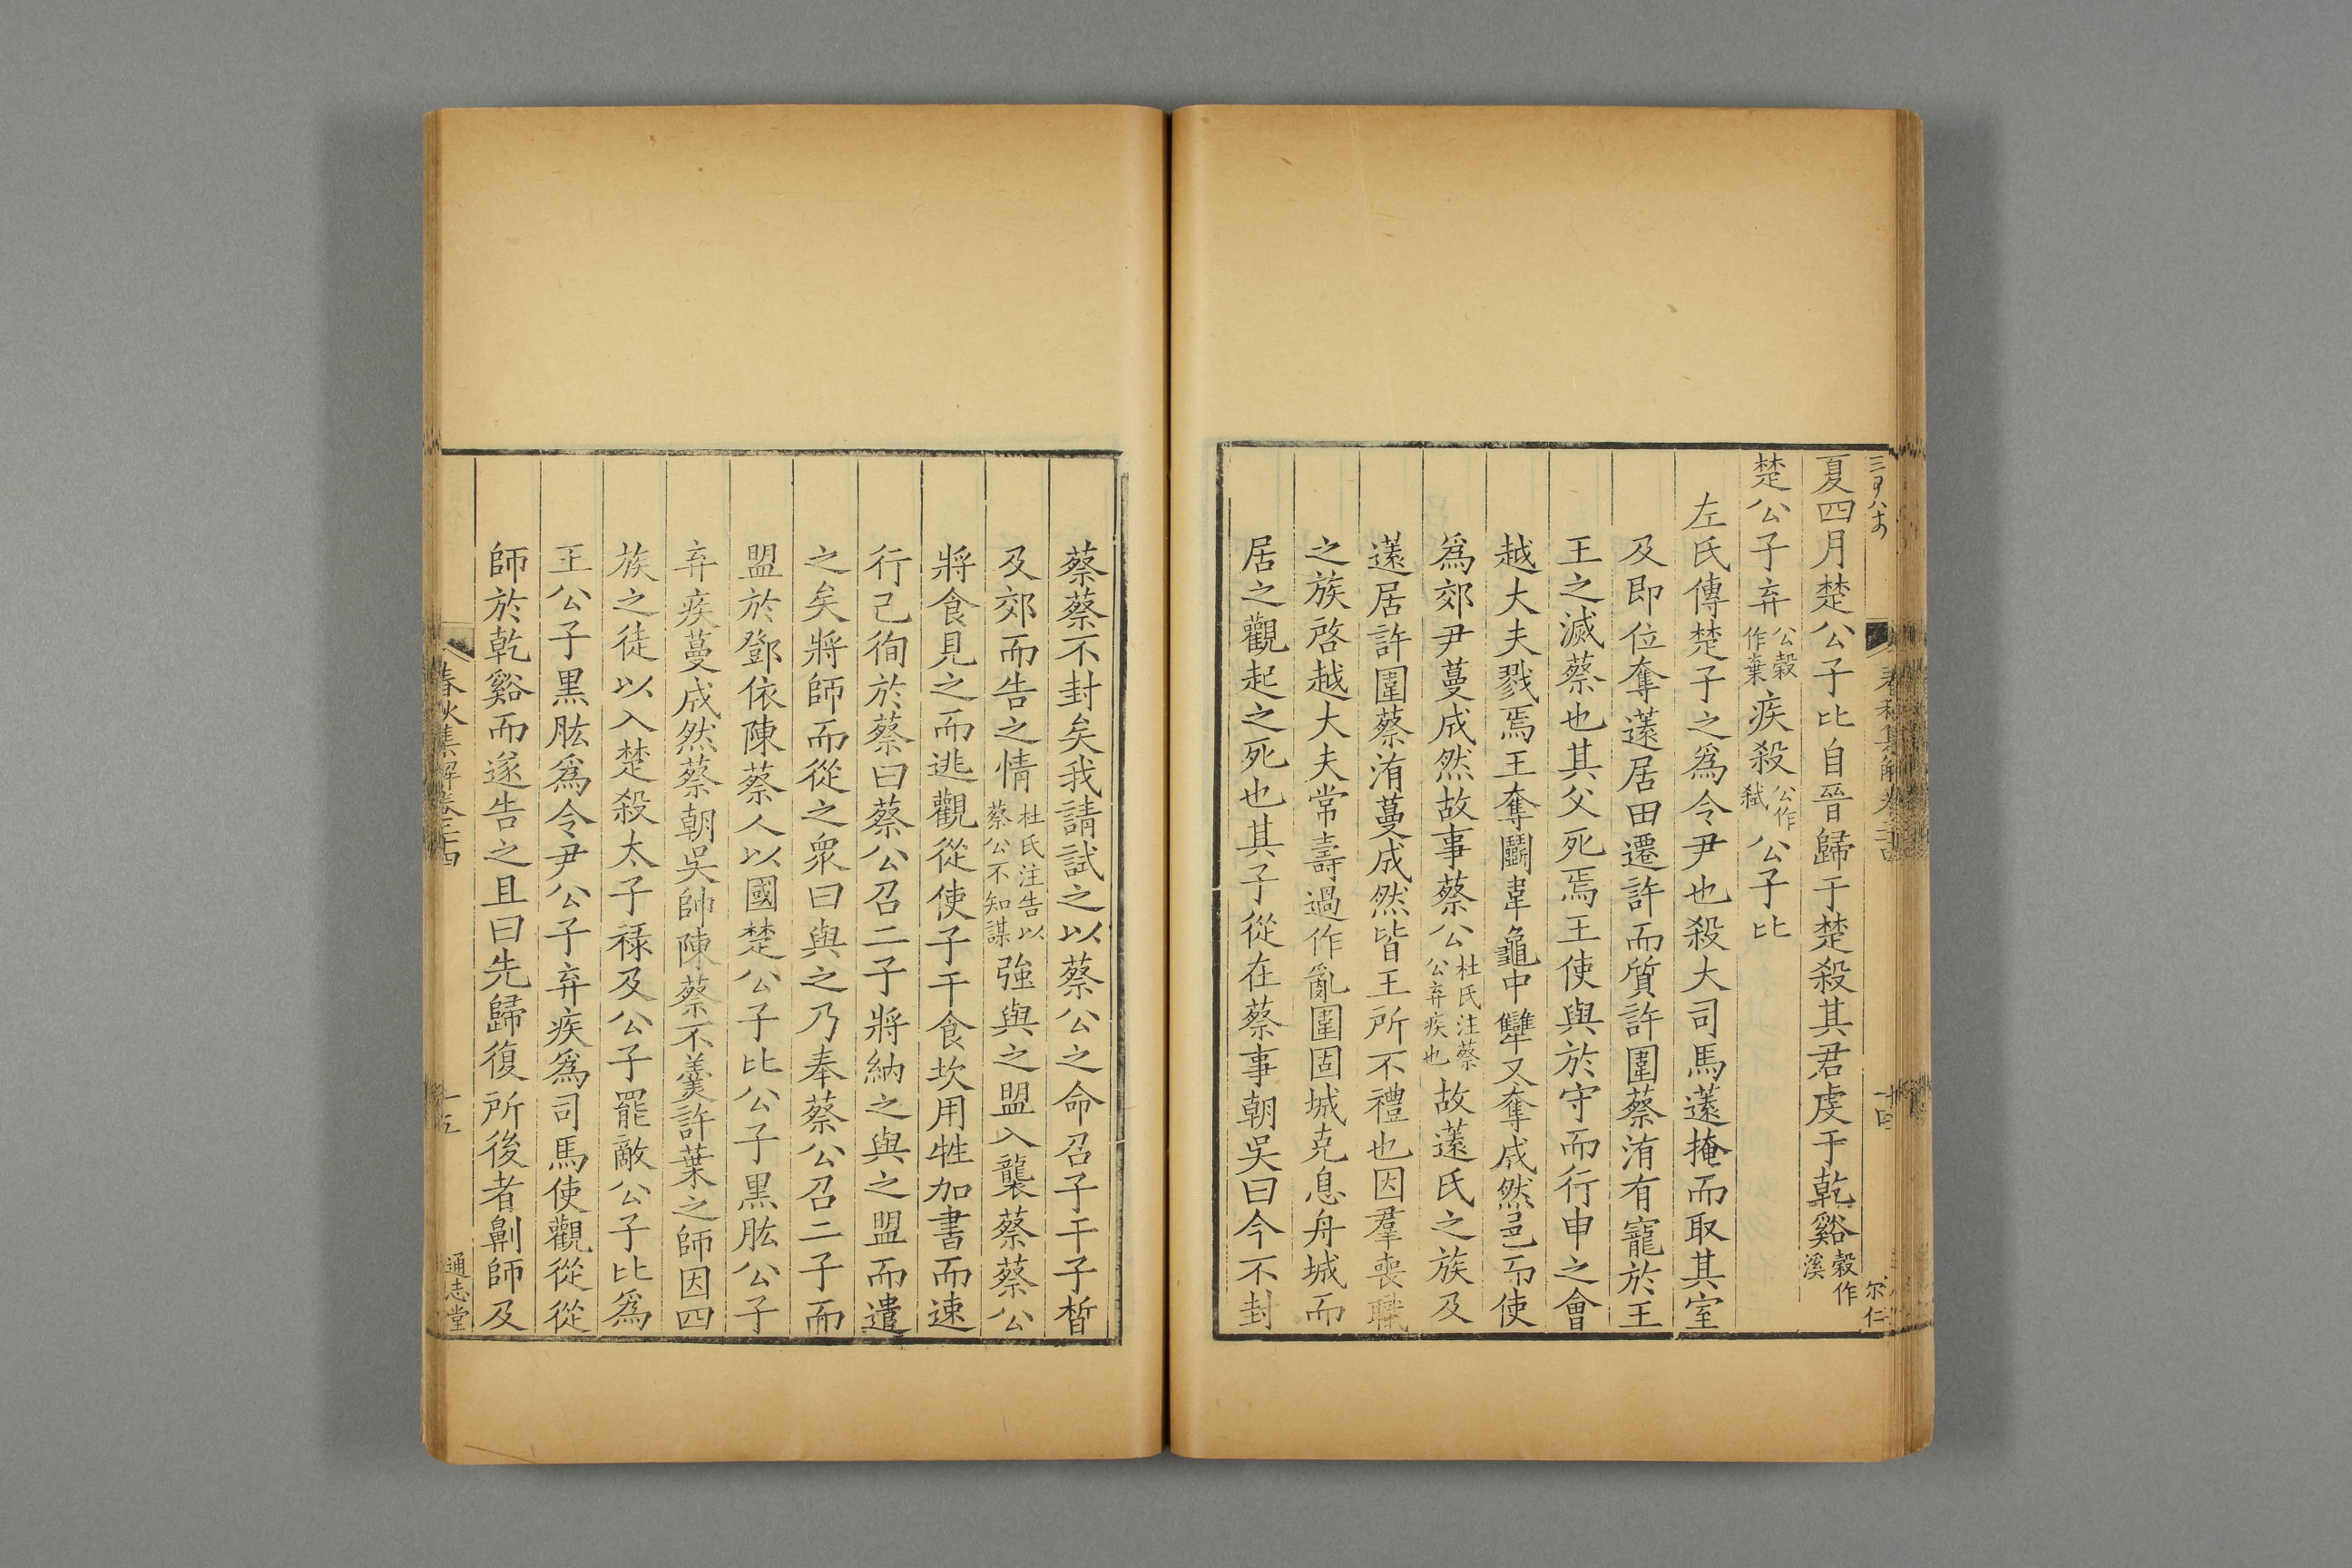 夏四月楚公子比自晉歸于楚殺其君虔于乾谿穀作溪
楚公子弃公穀作棄疾殺公作弑公子比
左氏傳楚子之爲令尹也殺大司馬薳掩而取其室
及即位奪薳居田遷許而質許圍蔡洧有寵於王
王之滅蔡也其父死焉王使與於守而行申之會
越大夫戮焉王奪鬬韋龜中犫又奪成然邑而使
爲郊尹蔓成然故事蔡公杜氏注蔡公弃疾也故薳氏之族及
薳居許圍蔡洧蔓成然皆王所不禮也因羣喪職
之族啓越大夫常壽過作亂圍固城克息舟城而
居之觀起之死也其子從在蔡事朝吳曰今不封
蔡蔡不封矣我請試之以蔡公之命召子干子晳
及郊而告之情杜氏注告以蔡公不知謀強與之盟入襲蔡蔡公
將食見之而逃觀從使子干食坎用牲加書而速
行己徇於蔡曰蔡公召二子將納之與之盟而遣
之矣將師而從之衆曰與之乃奉蔡公召二子而
盟於鄧依陳蔡人以國楚公子比公子黑肱公子
弃疾蔓成然蔡朝吳帥陳蔡不羹許葉之師因四
族之徒以入楚殺太子祿及公子罷敵公子比爲
王公子黑肱爲令尹公子弃疾爲司馬使觀從從
師於乾谿而遂告之且曰先歸復所後者劓師及
春秋集解卷二十四
通志堂